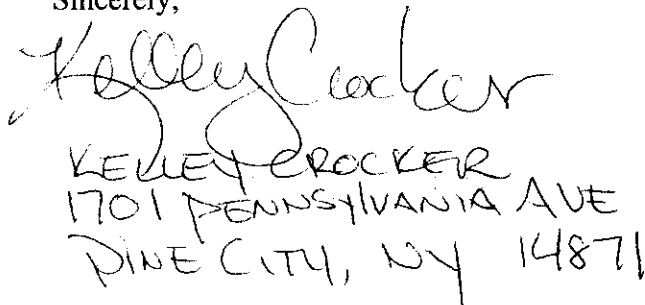 Sincerely,
Kelley Crocker
KELLEY CROCKER
1701 PENNSYlVANIA AVE
PINE CITY, NY 14871